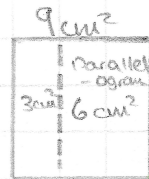 9 cm²
Parallel
-ogram
3cm² 6 cm²